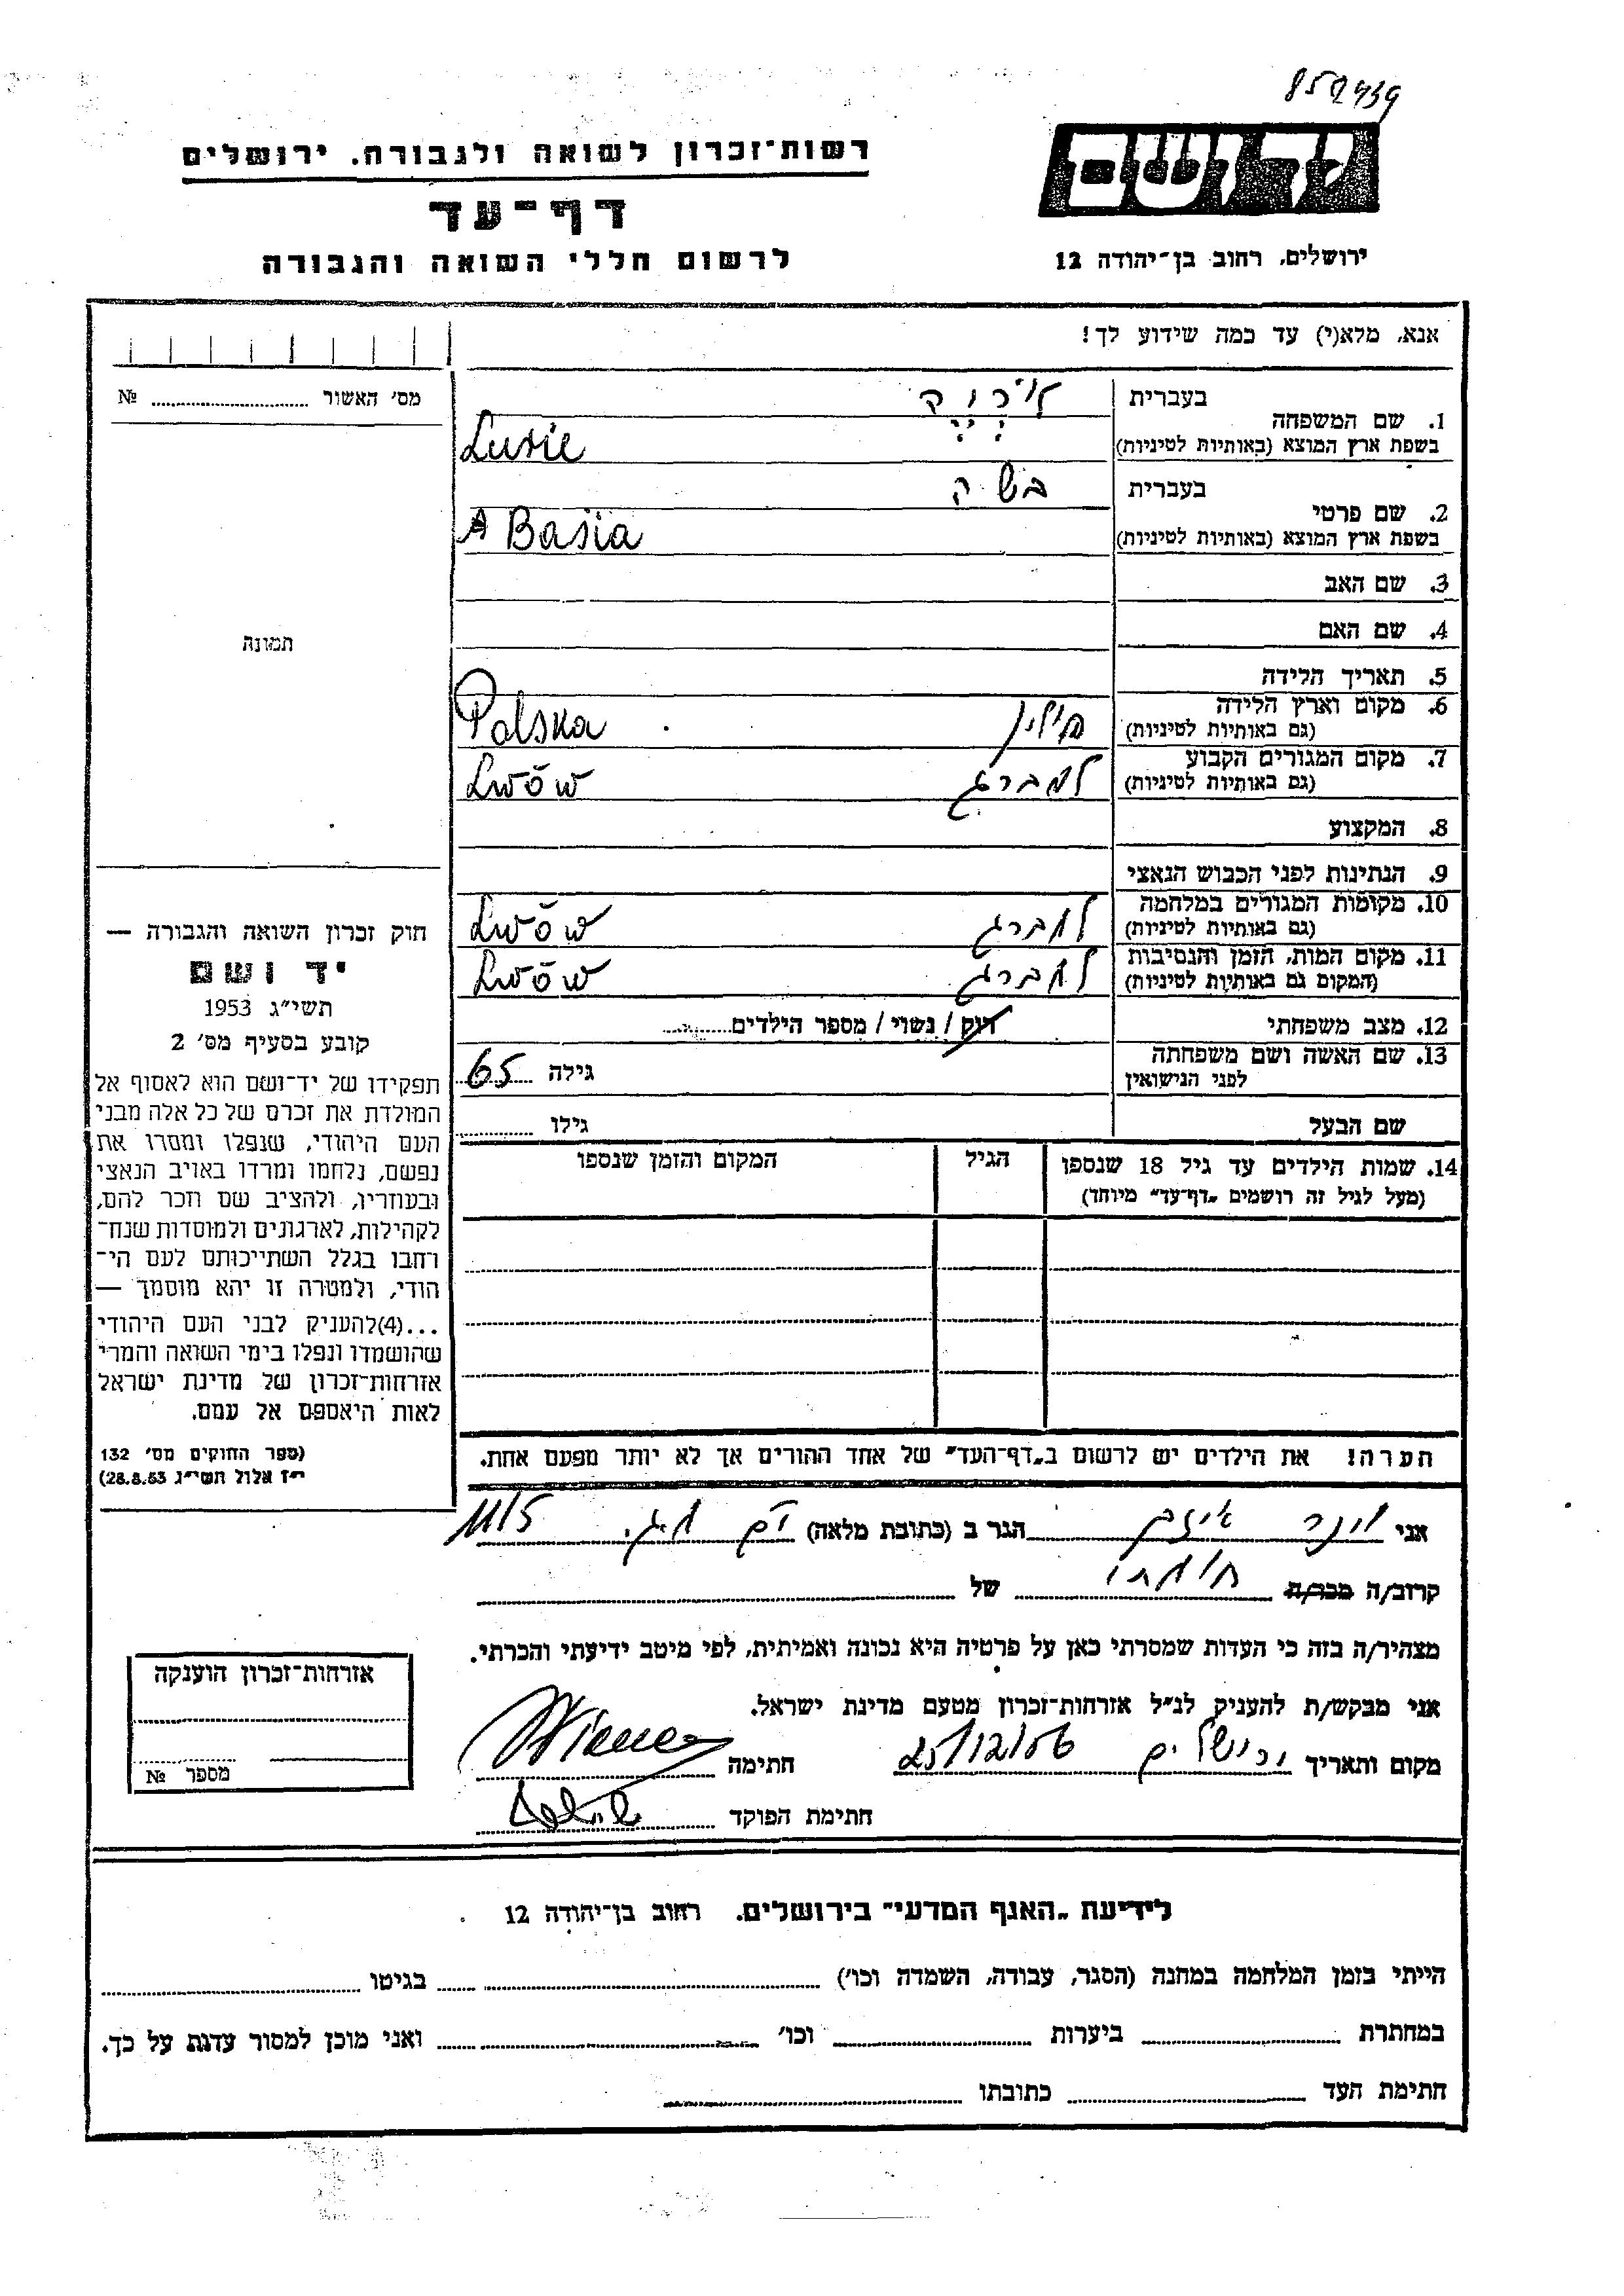 859439
ידושם
רשות־זכרון לשואה ולגבורה. ירושלים
דף־עד
לרשום חללי השואה והגבורה
ירושלים, רחוב בן־יהודה 12
אנא, מלא(י) עד כמה שידוע לך!
מס׳ האשור ........ №
1. שם המשפחה
בעברית
בשפת ארץ המוצא (באותיות לטיניות)
Lusie
2. שם פרטי
בעברית בשה
בשפת ארץ המוצא (באותיות לטיניות)
Basia
3. שם האב
4. שם האם
תמונה
5. תאריך הלידה
6. מקום וארץ הלידה
(גם באותיות לטיניות)
פולין Polska
7. מקום המגורים הקבוע
(גם באותיות לטיניות)
למברג Lwów
8. המקצוע
9. הנתינות לפני הכבוש הנאצי
10. מקומות המגורים במלחמה
(גם באותיות לטיניות)
למברג Lwów
11. מקום המות, הזמן והנסיבות
(המקום גם באותיות לטיניות)
למברג Lwów
12. מצב משפחתי
רוק / נשוי / מספר הילדים........
13. שם האשה ושם משפחתה
לפני הנישואין
גילה 65
שם הבעל
גילו ........
14. שמות הילדים עד גיל 18 שנספו
(מעל לגיל זה רושמים „דף־עד״ מיוחד)
הגיל
המקום והזמן שנספו
חוק זכרון השואה והגבורה —
יד ושם
תשי״ג 1953
קובע בסעיף מס׳ 2
תפקידו של יד־ושם הוא לאסוף אל
המולדת את זכרם של כל אלה מבני
העם היהודי, שנפלו ומסרו את
נפשם, נלחמו ומרדו באויב הנאצי
ובעוזריו, ולהציב שם וזכר להם,
לקהילות, לארגונים ולמוסדות שנח־
רחבו בגלל השתייכותם לעם הי־
הודי, ולמטרה זו יהא מוסמך —
...(4)להעניק לבני העם היהודי
שהושמדו ונפלו בימי השואה והמרי
אזרחות־זכרון של מדינת ישראל
לאות היאספם אל עמם.
(ספר החוקים מס׳ 132
י״ז אלול תשי״ג 28.8.53)
הערה! את הילדים יש לרשום ב„דף־העד״ של אחד ההורים אך לא יותר מפעם אחת.
אני וינר הגר ב (כתובת מלאה)
קרוב/ה מכר/ה חמתו של
מצהיר/ה בזה כי העדות שמסרתי כאן על פרטיה היא נכונה ואמיתית, לפי מיטב ידיעתי והכרתי.
אני מבקש/ת להעניק לנ״ל אזרחות־זכרון מטעם מדינת ישראל.
מקום ותאריך ירושלים 25/12/56 חתימה
חתימת הפוקד
אזרחות־זכרון הוענקה
מספר №
לידיעת „האגף המדעי״ בירושלים. רחוב בן־יהודה 12
הייתי בזמן המלחמה במחנה (הסגר, עבודה, השמדה וכו׳) ........ בגיטו ........
במחתרת ........ ביערות ........ וכו׳ ........ ואני מוכן למסור עדות על כך.
חתימת העד ........ כתובתו ........